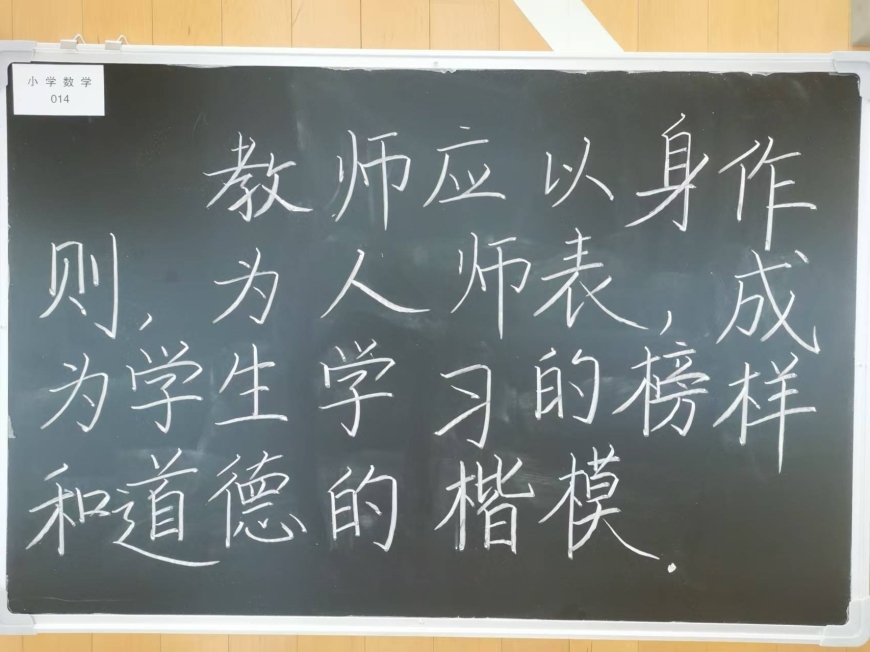 小学数学
014
教师应以身作
则,为人师表,成
为学生学习的榜样
和道德的楷模.